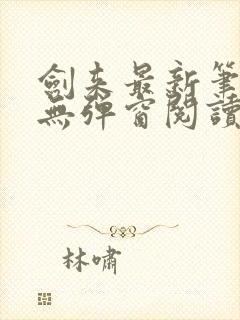 劍來最新筆
無彈窗閱讀
林嘯